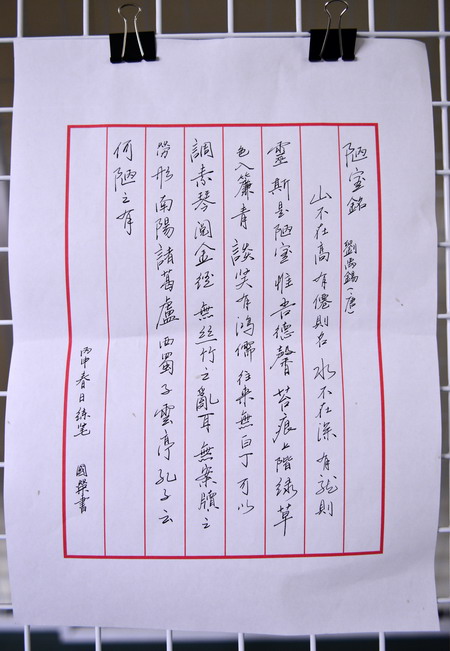 陋室銘 劉禹錫·唐
山不在高有僊則名水不在深有龍則
靈斯是陋室惟吾德馨苔痕上階绿草
色入簾青談笑有鴻儒往來無白丁可以
調素琴閱金經無丝竹之亂耳無案牘之
勞形南陽諸葛盧西蜀子雲亭孔子云
何陋之有
丙申春日练笔 國榮書